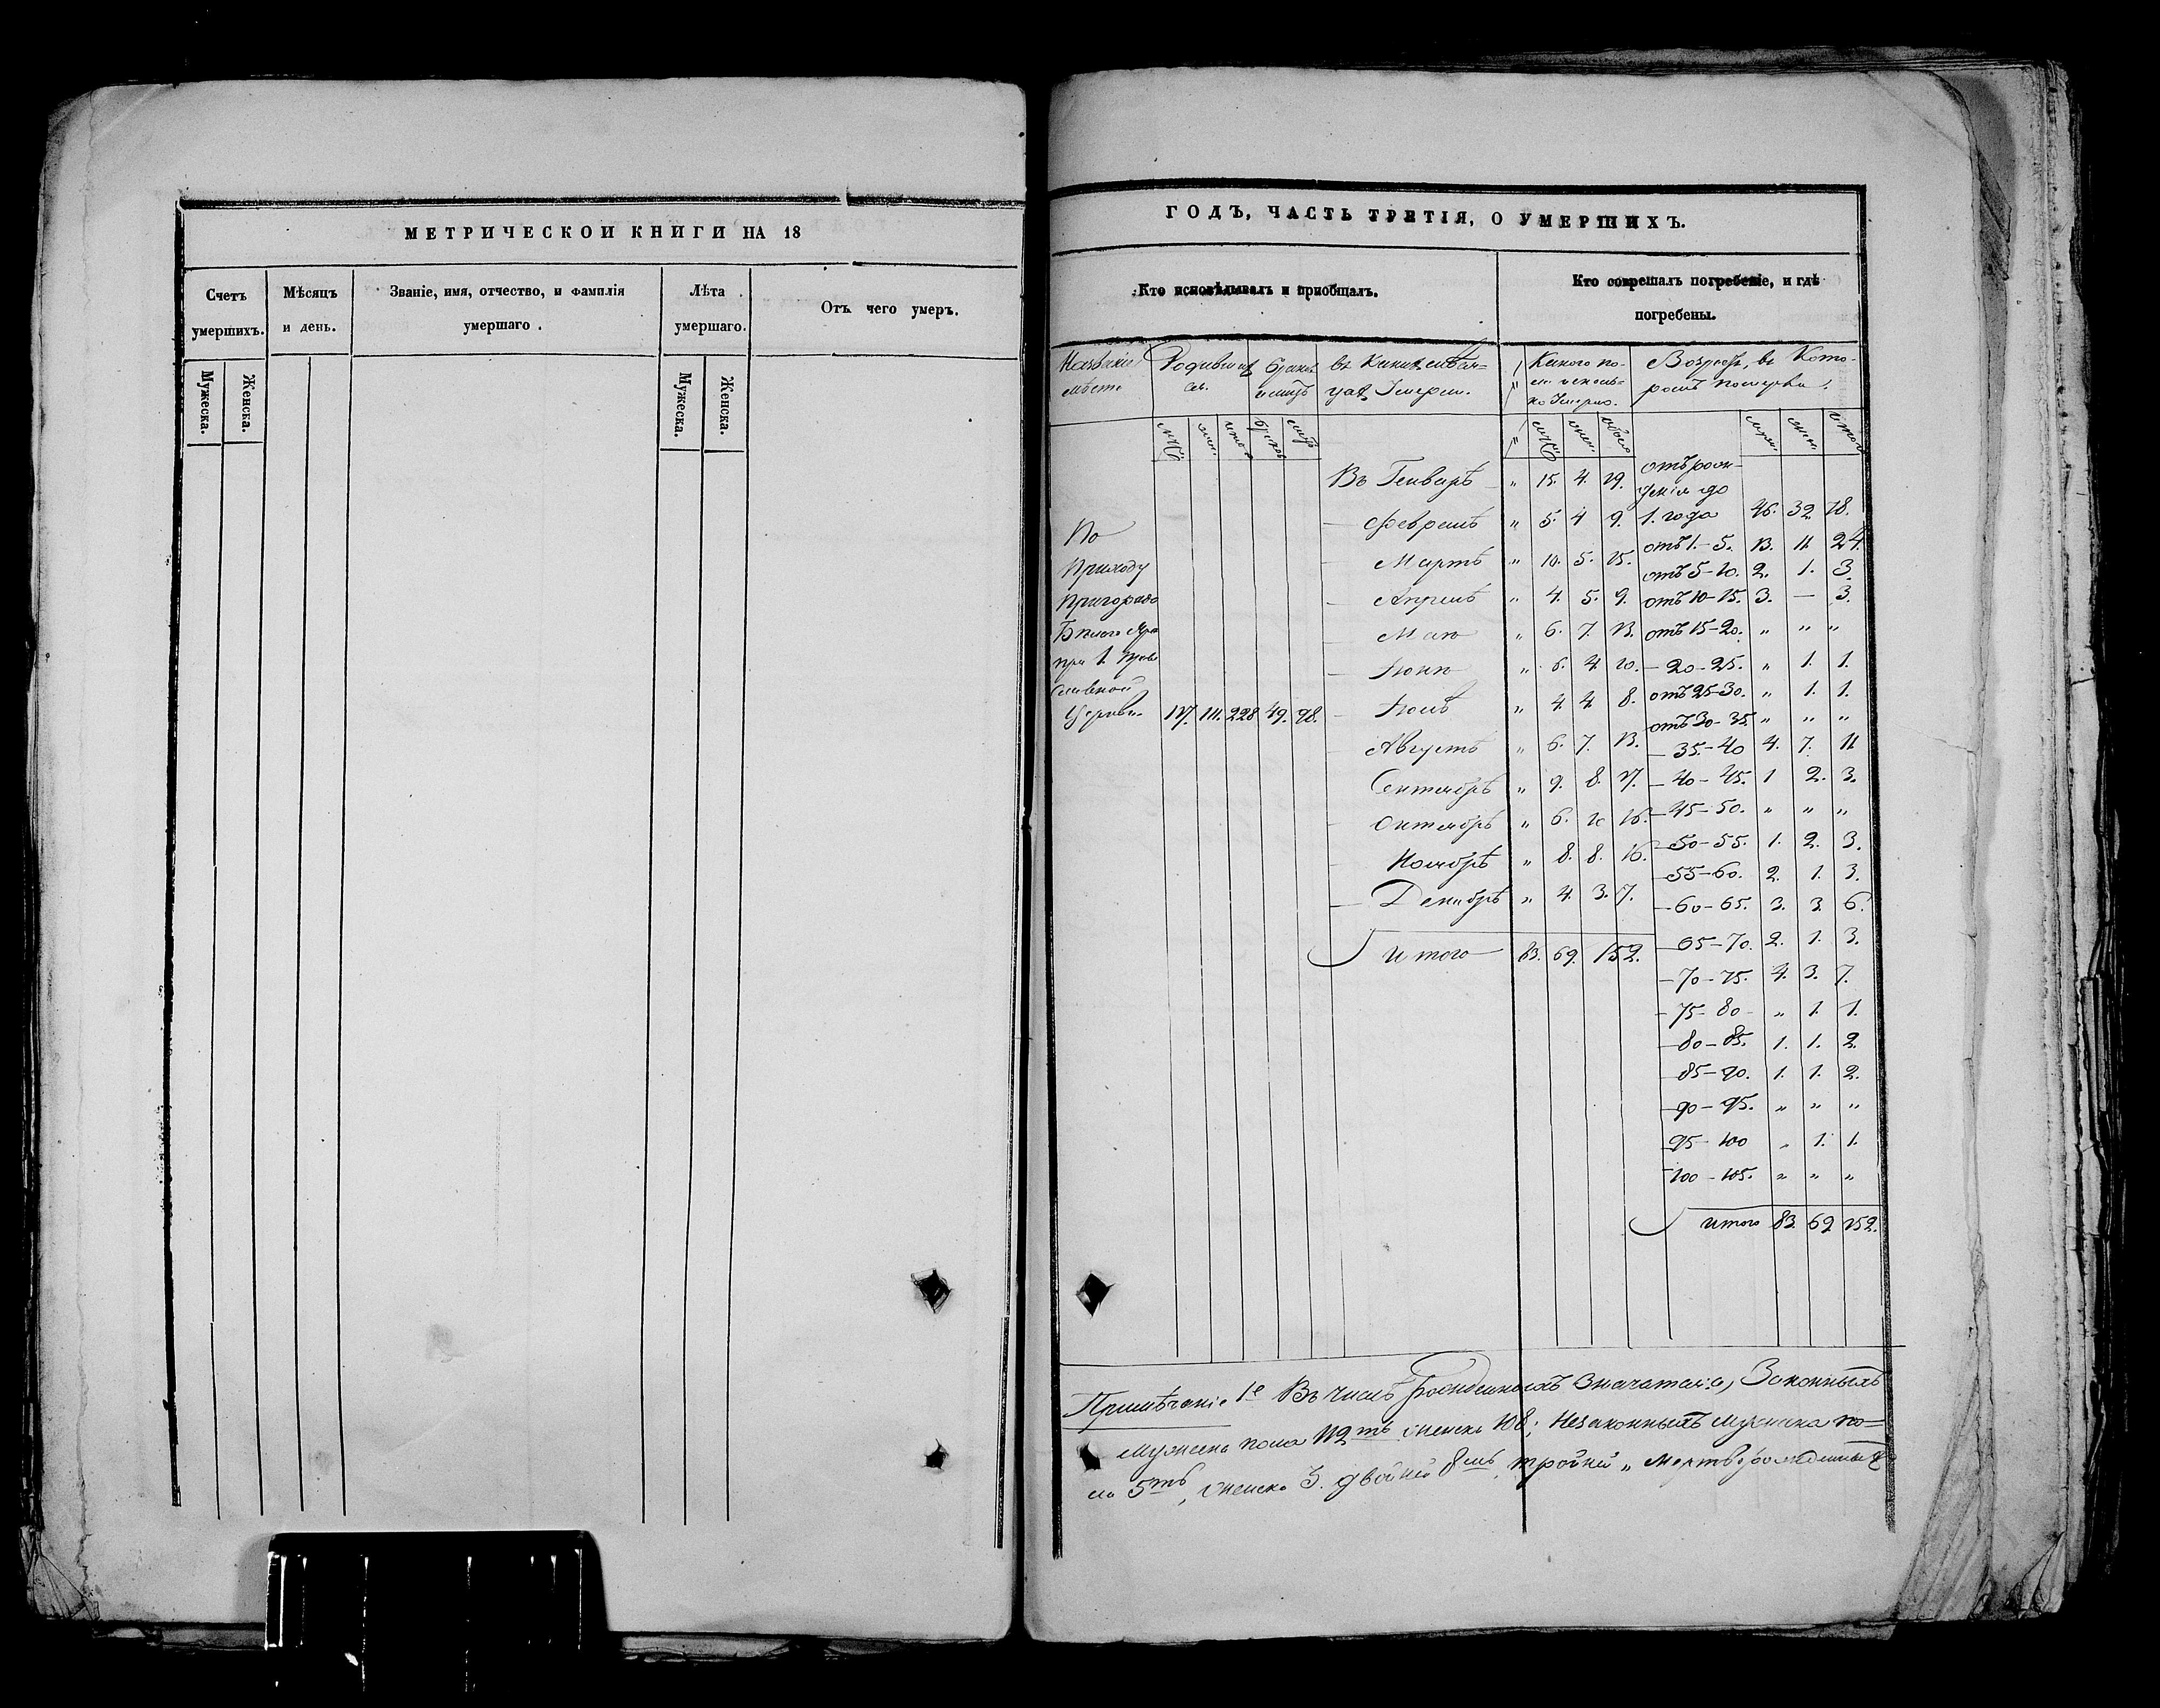 МЕТРИЧЕСКОЙ КНИГИ НА 18
Счетъ умершихъ.
Мѣсяцъ и день.
Званіе, имя, отчество, и фамилія умершаго.
Лѣта умершаго.
Отъ чего умеръ.
Мужеска.
Женска.
Мужеска.
Женска.
ГОДЪ, ЧАСТЬ ТРЕТІЯ, О УМЕРШИХЪ.
Кто исповѣдывалъ и пріобщалъ.
Кто совершалъ погребеніе, и гдѣ погребены.
Названіе мѣста
Родивших ся.
въ какихъ мѣся= цахъ умерли.
Какого по- ла и сколь- ко умерло.
Возрастъ, въ кото- ромъ померли.
По
Приходу
Пригорода
Бѣлаго Яра
при
церкви 117. 111. 228 49. 98.
Въ Генварѣ " 15. 4. 19.
— Февралѣ " 5. 4 9.
— Мартѣ " 10. 5. 15.
— Апрелѣ " 4. 5. 9.
— Маѣ " 6. 7. 13.
— Іюнѣ " 6. 4 10.
— Іюлѣ " 4. 4. 8.
— Августѣ " 6. 7. 13.
Сентябрѣ " 9. 8. 17.
— Октябрѣ " 6. 10 16.
— Ноябрѣ " 8. 8. 16.
— Декабрѣ " 4. 3. 7.
Итого 83. 69. 152.
отъ рож-
денія до
1. года 46. 32. 78.
отъ 1.-5. 13. 11 24.
отъ 5-10. 2. 1. 3.
отъ 10-15. 3. — 3.
отъ 15-20. " " "
— 20-25. " 1. 1.
отъ 25-30. " 1. 1.
отъ 30-35. " " "
— 35.-40 4. 7. 11
— 40-45. 1 2. 3.
— 45-50. " " "
— 50-55. 1. 2. 3.
— 55-60. 2. 1. 3.
— 60-65. 3. 3. 6.
— 65-70. 2. 1. 3.
— 70-75. 4. 3. 7.
— 75-80 " 1. 1.
— 80-85. 1. 1. 2.
— 85-90. 1. 1. 2.
— 90-95. " " "
95-100 " 1. 1.
100-105. " " "
Итого 83. 69 152.
Примѣчаніе 1е Въ числѣ рожденныхъ значатся, законныхъ
мужеска пола 112ть женска 108; незаконныхъ мужска по=
ла 5ть, женска 3. двойни 8мь, тройни " мертворожденны